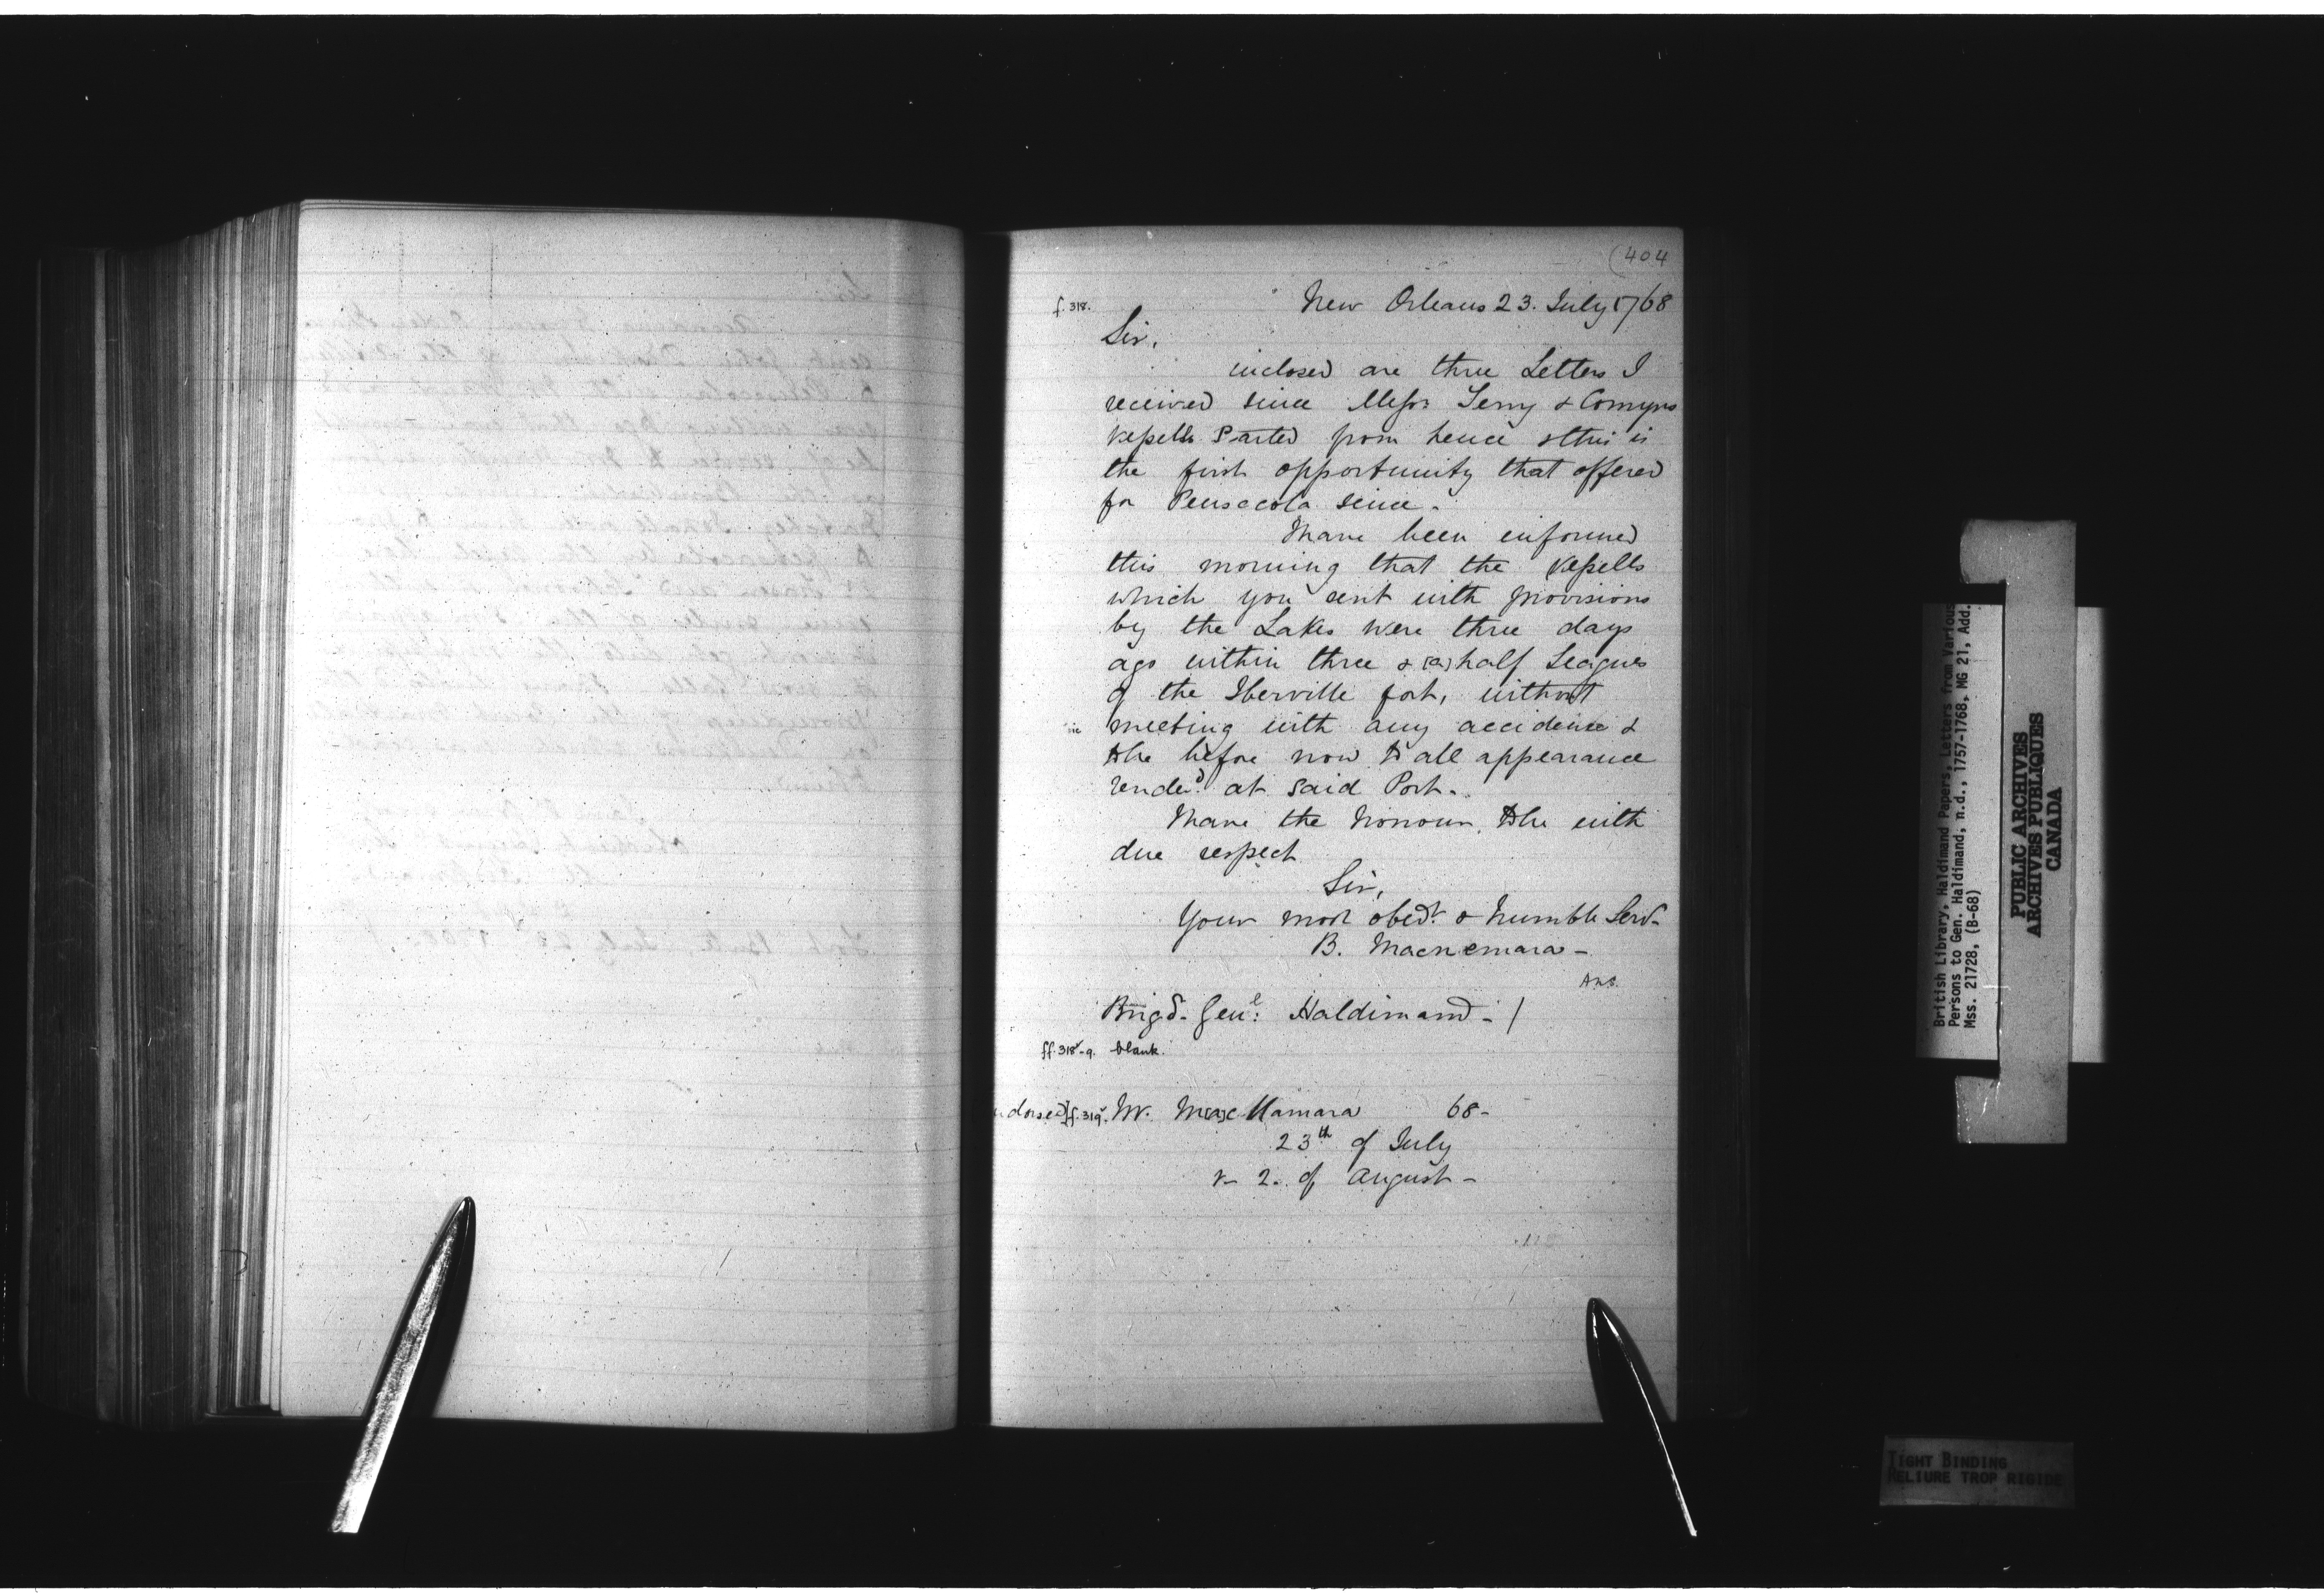 (404
f. 318.
New Orleans 23. July 1768
Sir,
inclosed are three Letters I
received since Messrs Terry & Comyns
vessells Parted from hence & this is
the first opportunity that offered
for Pensacola since.
I have been informed
this morning that the vessells
which you sent with provisions
by the Lakes were three days
ago within three & [a] half Leagues
of the Iberville fort, without
sic
meeting with any accidence &
to be before now to all appearance
rended at said Port.
I have the honour to be with
due respect
Sir,
Your most obedt. & humble Servt.
B. Macnemara -
Ans.
Brigd. Genl: Haldimand - /
ff. 318v-9. blank.
ndorsed] f. 319v. Mr. M[a]c Namara 68-
23th of July
r- 2. of August -
British Library, Haldimand Papers, Letters from Various
Persons to Gen. Haldimand, n.d., 1757-1768, MG 21, Add.
Mss. 21728, (B-68)
PUBLIC ARCHIVES
ARCHIVES PUBLIQUES
CANADA
TIGHT BINDING
RELIURE TROP RIGIDE